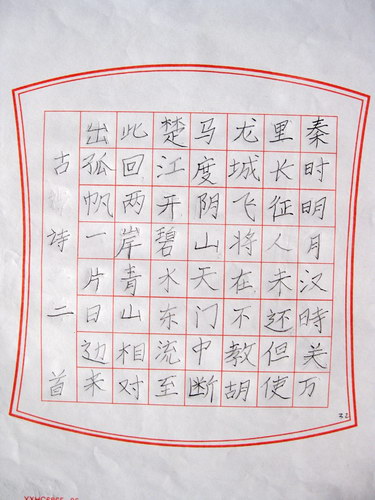 秦时明月汉時关万
里长征人未还但使
龙城飞将在不教胡
马度阴山天门中断
楚江开碧水东流至
此回两岸青山相对
出孤帆一片日边来
古诗二首